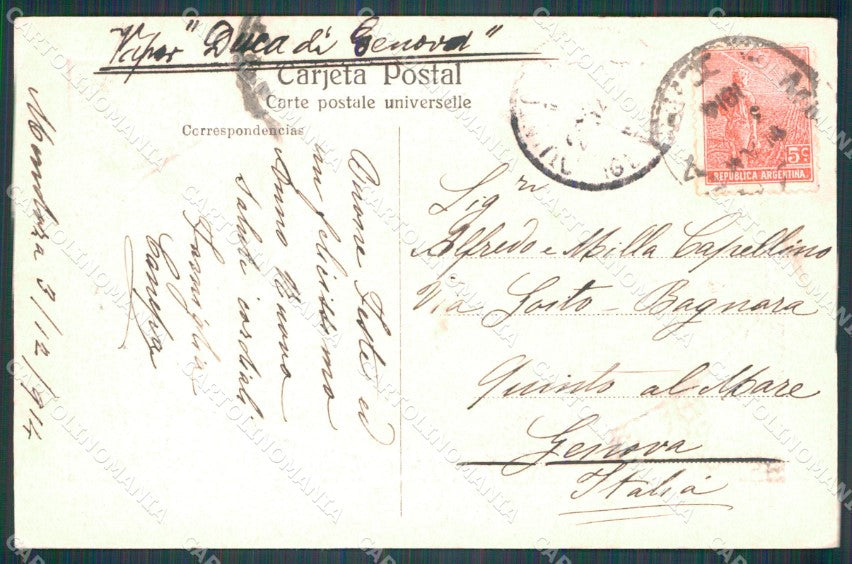 Vapor "Duca di Genova"
Carjeta Postal
Carte postale universelle
Correspondencias
Mendoza 3/12/914
Buone Feste ed
un felicissimo
Anno Nuovo
Saluti cordiali
Canova
5c
REPUBLICA ARGENTINA
Sig.ri
Alfredo e Milla Capellino
Via Gosto - Bagnara
Quinto al Mare
Genova
Italia
CARTOLINOMANIA